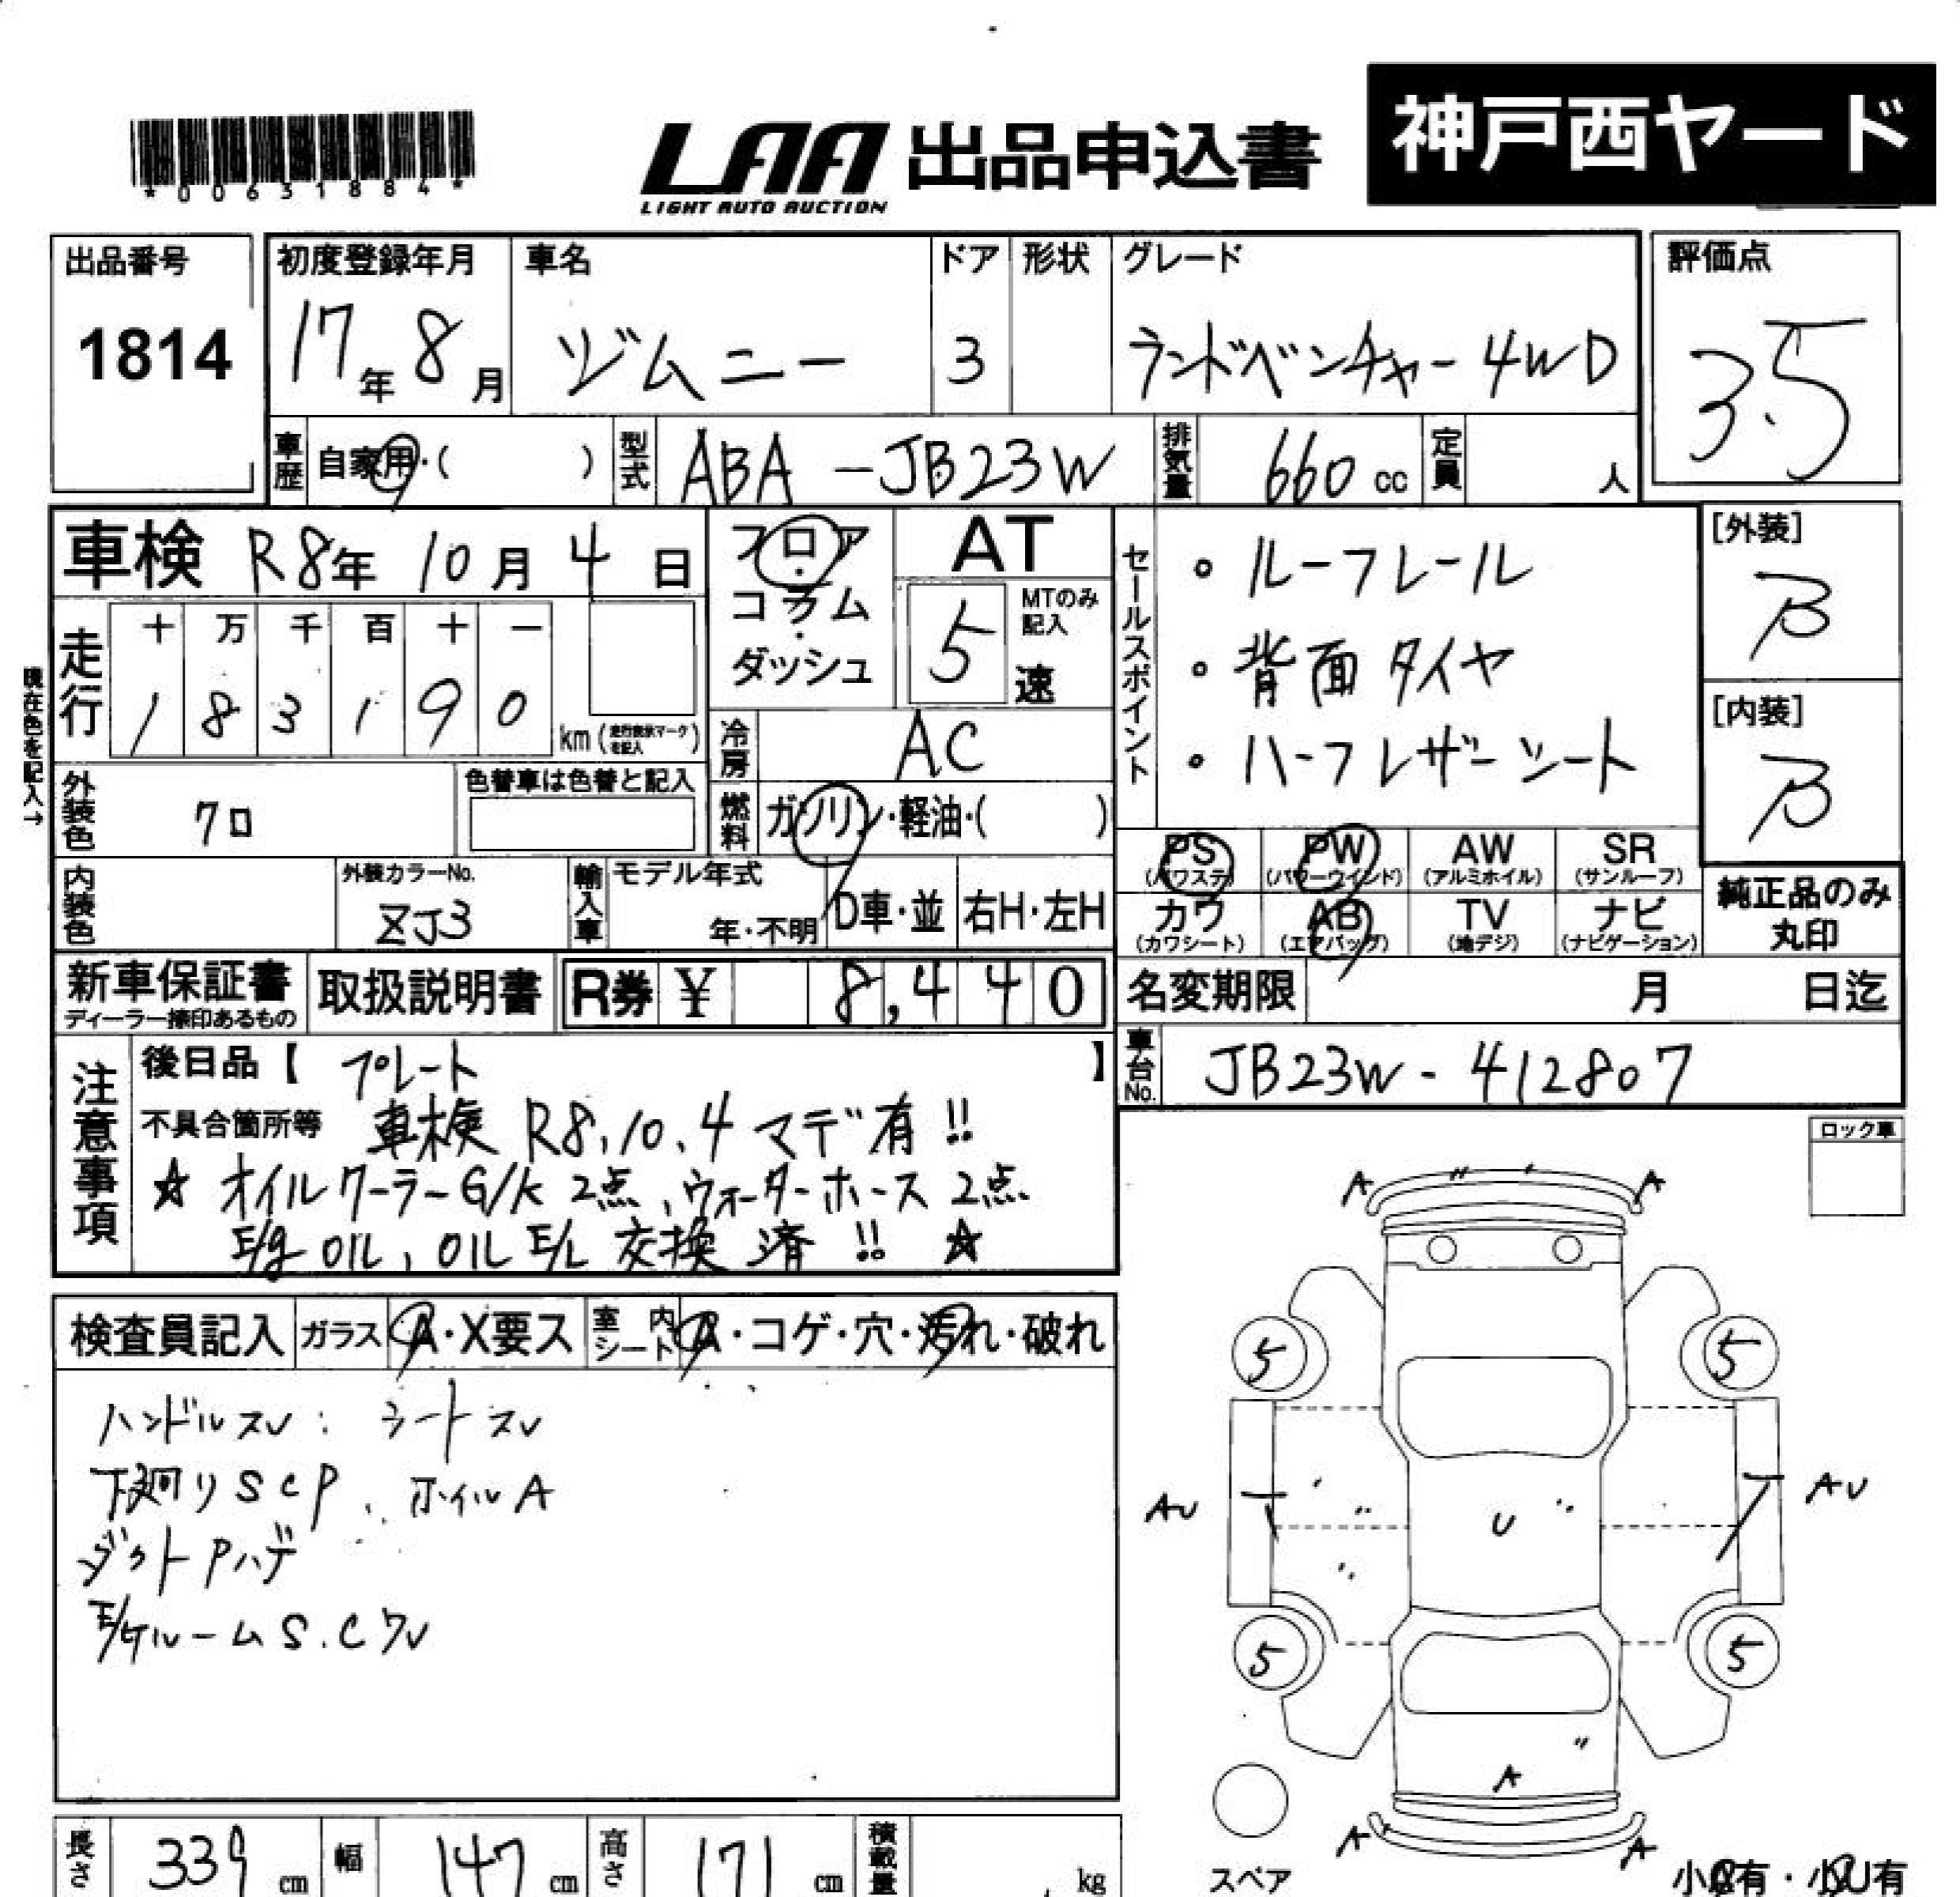 *00631884*
LAA 出品申込書 神戸西ヤード
LIGHT AUTO AUCTION
出品番号 初度登録年月 車名 ドア 形状 グレード 評価点
1814 17年 8月 ジムニー 3 ランドベンチャー 4WD 3.5
車歴 自家用・( ) 型式 ABA-JB23W 排気量 660 cc 定員 人
車検 R8年 10月 4日 フロア・コラム・ダッシュ AT
5 速 MTのみ記入
セールスポイント
・ルーフレール
・背面タイヤ
・ハーフレザーシート
[外装]
B
[内装]
B
現在色を記入→
走行 十 万 千 百 十 一
1 8 3 1 9 0 km (走行表示マークを記入)
冷房 AC
外装色 クロ 色替車は色替と記入
燃料 ガソリン・軽油・( )
PS (パワステ) PW (パワーウインド) AW (アルミホイル) SR (サンルーフ)
カワ (カワシート) AB (エアバッグ) TV (地デジ) ナビ (ナビゲーション)
純正品のみ
丸印
内装色 外装カラーNo. ZJ3 輸入車 モデル年式 年・不明 D車・並 右H・左H
新車保証書 ディーラー捺印あるもの 取扱説明書 R券 ¥ 8,440
名変期限 月 日迄
車台No. JB23W-412807
注意事項
後日品【 プレート 】
不具合箇所等 車検 R8.10.4 マデ有!!
☆ オイルクーラーG/K 2点、ウォーターホース 2点
E/g OIL, OIL E/L 交換済!! ☆
ロック車
検査員記入 ガラス A・X要ス 室内シート A・コゲ・穴・汚れ・破れ
ハンドルスレ: シートスレ
下廻りSCP、ホイルA
ダクトPハゲ
S.C
A A
5 5
AU U AU
5 5
A
A A
スペア
小 有・小U有
長さ 339 cm 幅 147 cm 高さ 171 cm 積載量 kg